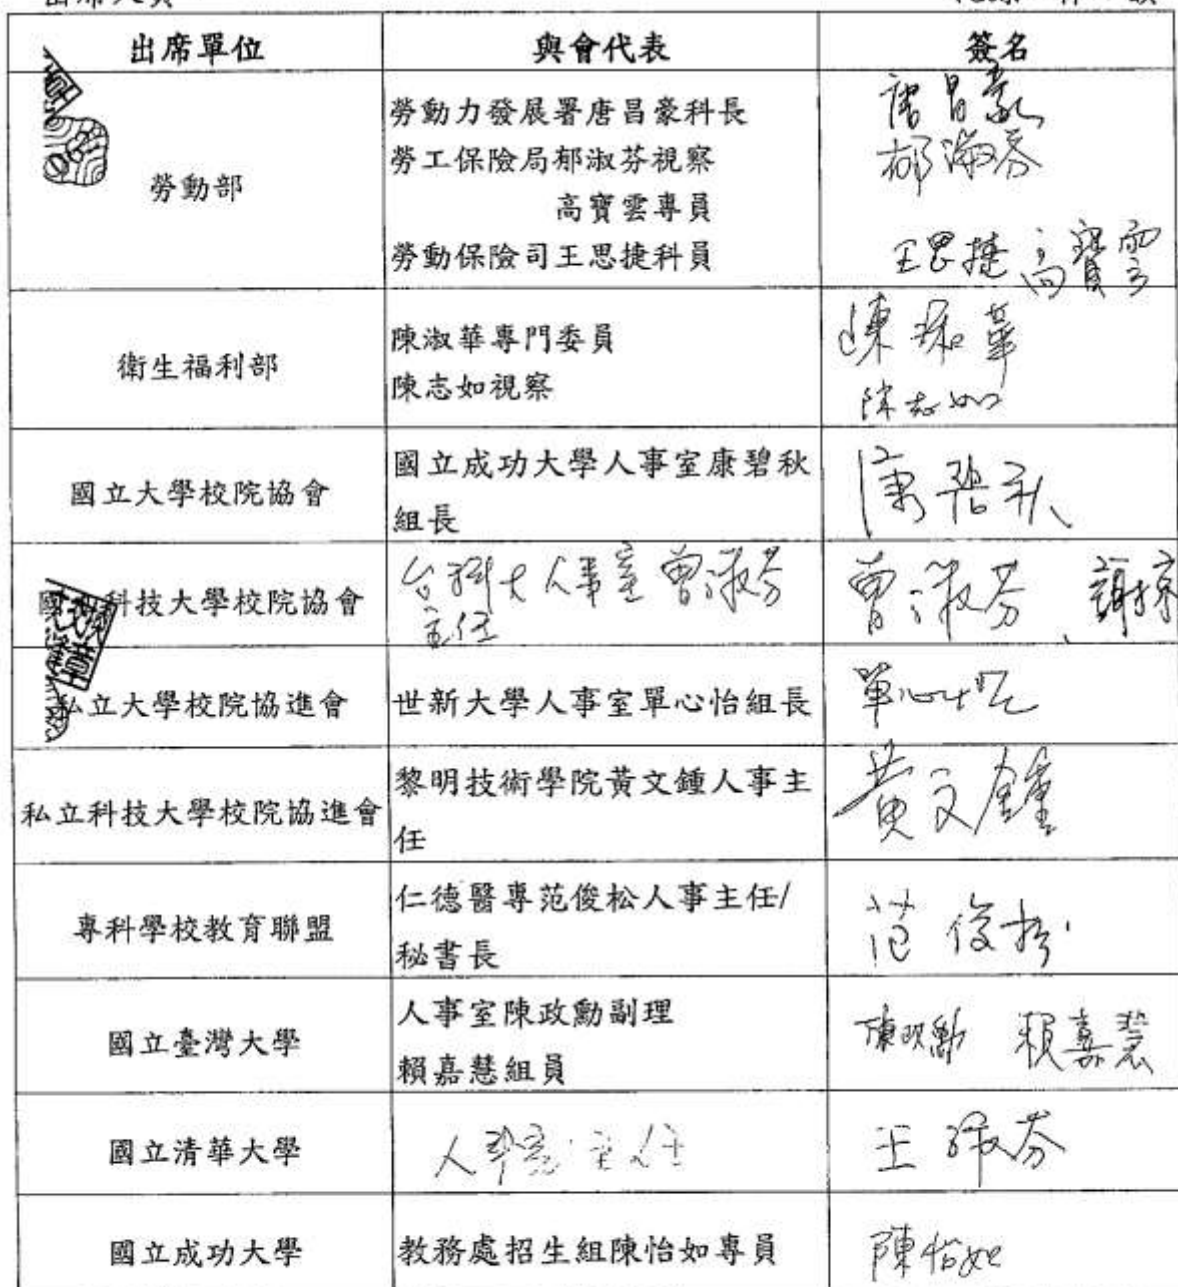 出席人員
出席單位 與會代表 簽名
勞動部
勞動力發展署唐昌豪科長
勞工保險局郁淑芬視察
高寶雲專員
勞動保險司王思捷科員
唐昌豪
郁淑芬
王思捷 高寶雲
衛生福利部
陳淑華專門委員
陳志如視察
陳淑華
陳志如
國立大學校院協會
國立成功大學人事室康碧秋
組長
康碧秋
科技大學校院協會
台科大人事室曾淑芬
主任
曾淑芬
私立大學校院協進會
世新大學人事室單心怡組長
單心怡
私立科技大學校院協進會
黎明技術學院黃文鍾人事主
任
黃文鍾
專科學校教育聯盟
仁德醫專范俊松人事主任/
秘書長
范俊松
國立臺灣大學
人事室陳政勳副理
賴嘉慧組員
陳政勳 賴嘉慧
國立清華大學
人事室主任
王淑芬
國立成功大學
教務處招生組陳怡如專員
陳怡如